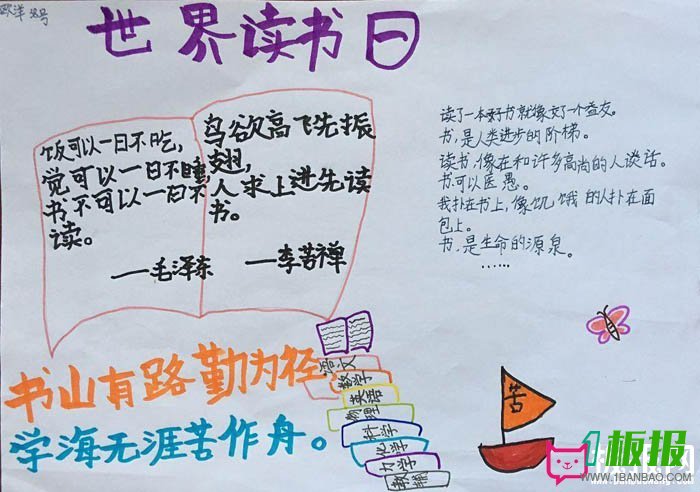 欧洋 38号
世界读书日
饭可以一日不吃,
觉可以一日不睡,
书不可以一日不
读。
——毛泽东
鸟欲高飞先振
翅,
人求上进先读
书。
——李苦禅
读了一本好书就像交了一个益友。
书,是人类进步的阶梯。
读书,像在和许多高尚的人谈话。
书可以医愚。
我扑在书上,像饥饿的人扑在面
包上。
书,是生命的源泉。
……
书山有路勤为径
学海无涯苦作舟。
语文
数学
英语
物理
科学
化学
力学
苦
1板报
WWW.1BANBAO.COM